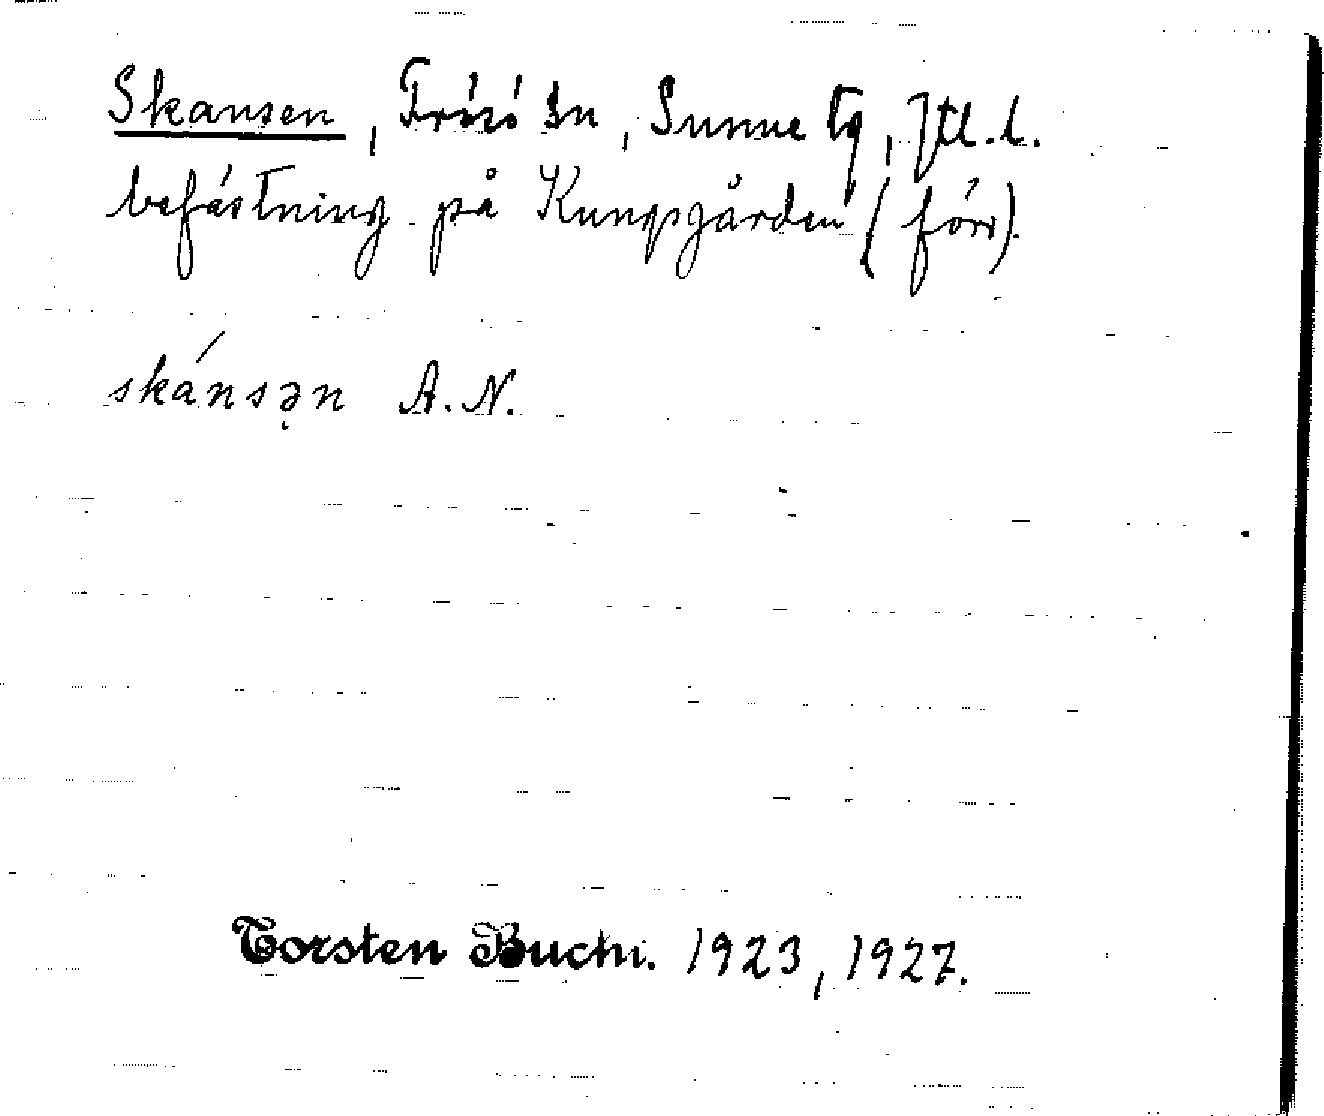 Skansen, Frösö Sn, Sunne tg, Jtl. l.
befästning på Kungsgården (förr).
skánsən A.N.
Torsten Bucht. 1923, 1927.